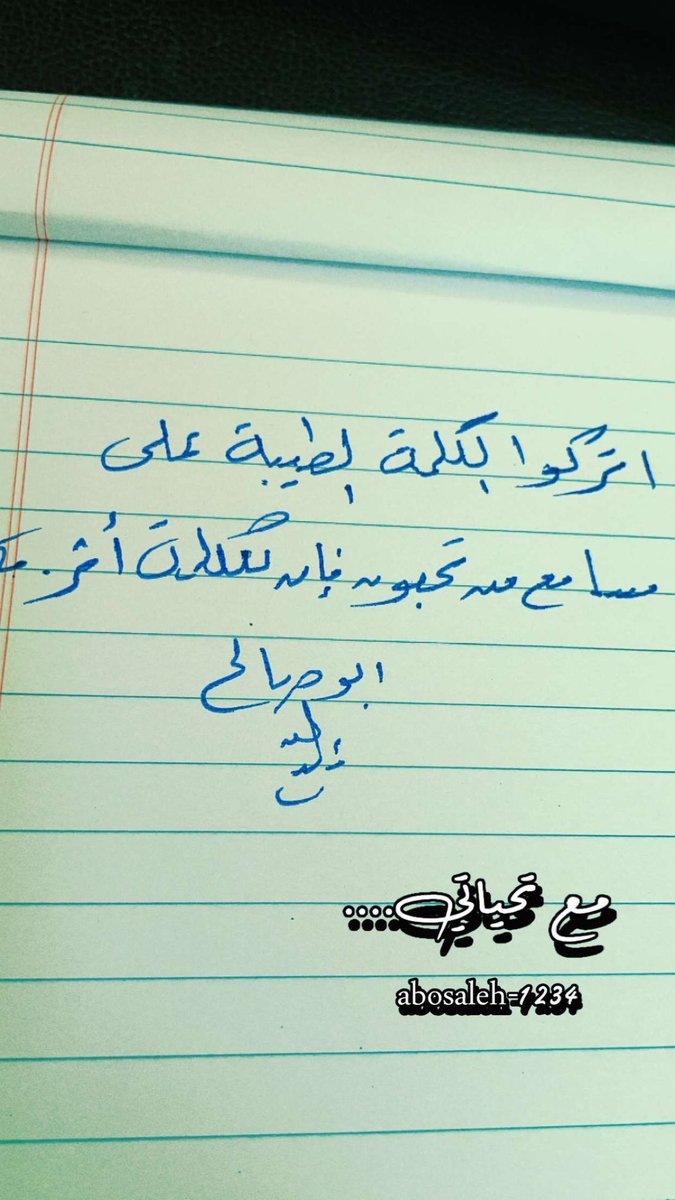 اتركوا الكلمة الطيبة على
مسامع من تحبون فإن للكلمات أثر.
ابو صالح
مع تحياتي....
abosaleh=1234